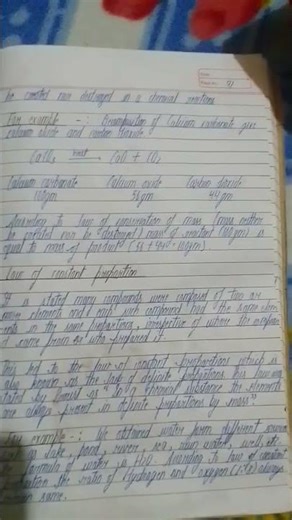 91
be created nor destroyed in a chemical reaction
For example -: Decomposition of Calcium carbonate give
calcium oxide and carbon dioxide
CaCO3 heat CaO + CO2
Calcium carbonate Calcium oxide Carbon dioxide
100gm 56gm 44gm
According to law of conservation of mass (mass neither
be created nor be destroyed) mass of reactant (100gm) is
equal to mass of product (56 + 44 = 100gm)
Law of constant proportion
It is stated many compounds were composed of two or
more elements and each such compound had the same
in the same proportions, irrespective of where the compound
came from or who prepared it
This led to the law of constant proportions which is
also known as the law of definite proportions. This law was
stated by Proust as "In a chemical substance the elements
are always present in definite proportions by mass"
For example -: We obtained water from different sources
such as lake, pond, river, sea, well, etc.
formula of water is H2O. According to law of constant
the ratio of Hydrogen and oxygen always
same.